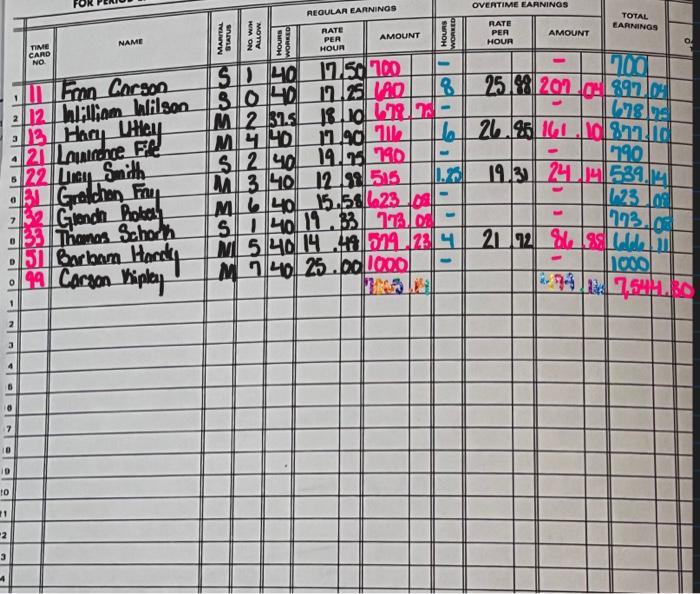 FOR PERIOD
REGULAR EARNINGS
OVERTIME EARNINGS
TIME CARD NO. NAME MARITAL STATUS NO. W/H ALLOW. HOURS WORKED RATE PER HOUR AMOUNT HOURS WORKED RATE PER HOUR AMOUNT TOTAL EARNINGS
1 11 Fran Carson S 1 40 17.50 700 - - 700
2 12 William Wilson S 0 40 17.25 690 8 25.88 207.04 897.04
3 13 Hary Utley M 2 37.5 18.10 678.75 - - 678.75
4 21 Lawrence Fife M 4 40 17.90 716 6 26.85 161.10 877.10
5 22 Lucy Smith S 2 40 19.75 790 - - 790
6 31 Gretchen Fay M 3 40 12.88 515 1.25 19.31 24.14 539.14
7 32 Glenda M 6 40 15.58 623.08 - - 623.08
8 33 Thomas S 1 40 19.33 773.08 - - 773.08
9 51 Barbara Hardy M 5 40 14.48 579.23 4 21.72 86.88 666.11
0 99 Carson Kipley M 7 40 25.00 1000 - - 1000
1 7,544.30
2
3
4
5
6
7
8
9
20
21
22
3
4